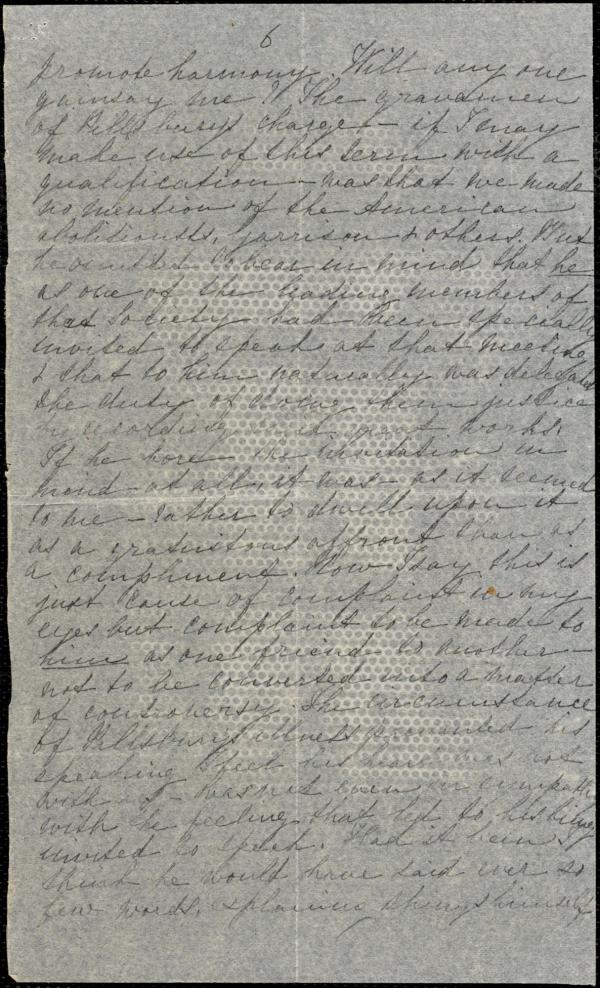 6
promote harmony. Will any one
gainsay me? The gravamen
of Pillsbury's charge - if I may
make use of this term with a
qualification - was that we made
no mention of the American
abolitionists, Garrison & others. But
he omitted to bear in mind that he
as one of the leading members of
that Society had been specially
invited to speak at that meeting
& that to him naturally was delegated
the duty of doing them justice
by recording their great works.
If he bore the invitation in
mind at all, it was - as it seemed
to me - rather to dwell upon it
as a gratuitous affront than as
a compliment. Now I say this is
just cause of complaint in my
eyes but complaint to be made to
him as one friend to another -
not to be converted into a matter
of controversy. The circumstance
of Pillsbury's illness prevented his
speaking I feel his heart was not
with us - was not even in sympathy
with the feeling that led to his being
invited to speak. Had it been I
think he would have said ever so
few words, explaining things himself